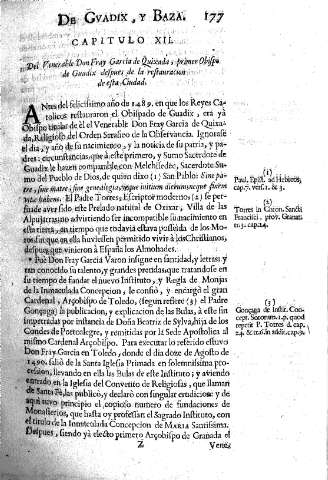 DE GVADIX, Y BAZA. 177
CAPITULO XII.
Del Venerable Don Fray Garcia de Quixada, primer Obispo
de Guadix despues de la restauracion
de esta Ciudad.
ANtes del felicissimo año de 1489. en que los Reyes Ca-
tolicos restauraron el Obispado de Guadix, era yà
Obispo titular de èl el Venerable Don Fray Garcia de Quixa-
da, Religioso del Orden Serafico de la Observancia. Ignorase
el dia, y año de su nacimiento, y la noticia de su patria, y pa-
dres: circunstancias, que à este primero, y Sumo Sacerdote de
Guadix le hazen comparable con Melchisedec, Sacerdote Su-
mo del Pueblo de Dios, de quien dixo (1) San Pablo: Sine pa-
tre, sine matre, sine genealogia,
El Padre Torres, Escriptor moderno (2) se per-
suade aver sido este Prelado natural de Orixar, Villa de las
Alpujarras, no advirtiendo ser incompatible su nacimiento en
esta tierra, en tiempo que todavia estava posseida de los Mo-
ros, sin que en ella huviessen permitido vivir à los Christianos,
despues que vinieron à España los Almohades.
Fue Don Fray Garcia Varon insigne en santidad, y letras, y
tan conocido su talento, y grandes prendas, que tratandose en
su tiempo de fundar el nuevo Instituto, y Regla de Monjas
de la Inmaculada Concepcion, le consiò, y encargò el gran
Cardenal, Arçobispo de Toledo, (segun refiere (3) el Padre
Gonçaga) la publicacion, y explicacion de las Bulas, à este fin
impetradas por instancia de Doña Beatriz de Sylva, hija de los
Condes de Portoalegre, y remitidas por la Sede Apostolica al
mismo Cardenal Arçobispo. Para executar lo referido estuvo
Don Fray Garcia en Toledo, donde el dia doze de Agosto de
1490. saliò de la Santa Iglesia Primada en solemnissima pro-
cession, llevando en ella las Bulas de este Instituto; y aviendo
entrado en la Iglesia del Convento de Religiosas, que llaman
de Santa Fè, las publicò, y declarò con singular erudicion: y de
aqui tuvo principio el copioso numero de fundaciones de
Monasterios, que hasta oy professan el Sagrado Instituto, con
el titulo de la Inmaculada Concepcion de MARIA Santissima.
Despues, siendo yà electo primero Arçobispo de Granada el
Z Vene-
(1)
Paul. Epist. ad Hebreos,
cap. 7. vers. 1. & 3.
(2)
Torres in Chron. Sancti
Francisci, prov. Granat.
tr. 3. cap. 24.
(3)
Gonçaga de Instit. Con-
cept. Sororum 1. p. quod
reperit P. Torres d. cap.